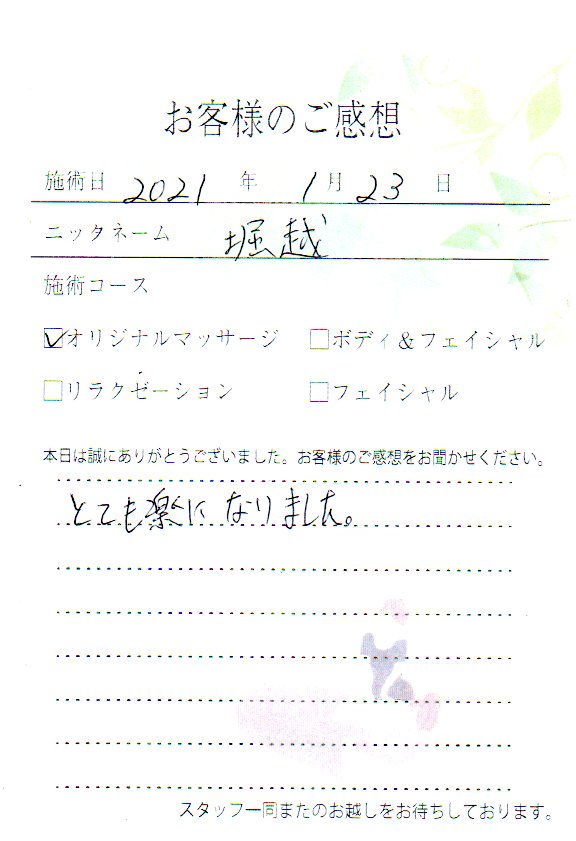 お客様のご感想
施術日 2021 年 1月 23 日
ニッタネーム 堀越
施術コース
☑オリジナルマッサージ □ボディ&フェイシャル
□リラクゼーション □フェイシャル
本日は誠にありがとうございました。お客様のご感想をお聞かせください。
とても楽になりました。
スタッフ一同またのお越しをお待ちしております。